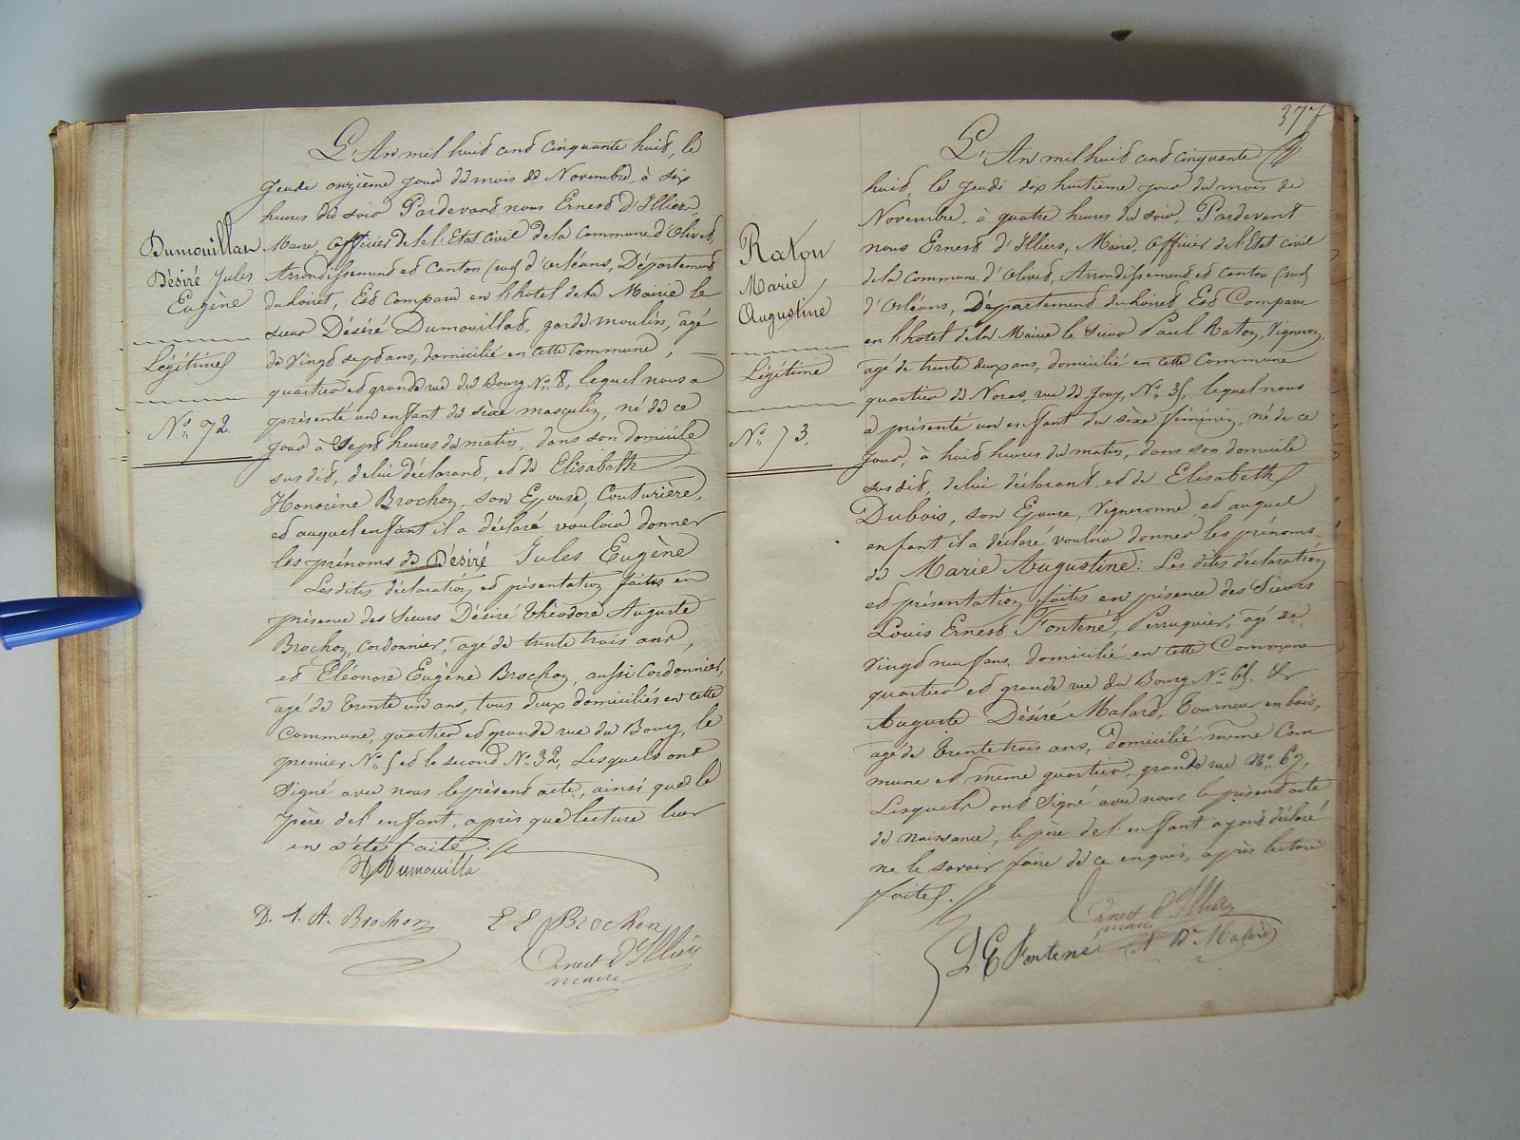 L'An mil huit cent cinquante huit, le
Jeudi onzième jour du mois de Novembre à six
heures du soir Pardevant nous Ernest d'Illiers,
Maire, officier de l'Etat civil de la Commune d'Olivet,
Arrondissement et Canton (sud) d'Orléans, Département
du Loiret, Est comparu en l'hôtel de la Mairie le
sieur Désiré Dumouillat, garde moulin, âgé
de vingt sept ans, domicilié en cette Commune,
quartier et grande rue du Bourg No. 8, lequel nous a
présenté un enfant du sexe masculin, né de ce
jour à Sept heures du matin, dans son domicile
sus dit, de lui déclarant, et de Elisabeth
Honorine Brochon, son Epouse, Couturière,
et auquel enfant il a déclaré vouloir donner
les prénoms de Désiré Jules Eugène
Les dites déclaration et présentation faites en
présence des Sieurs Désiré Théodore Auguste
Brochon, cordonnier, âgé de trente trois ans,
et Eléonore Eugène Brochon, aussi Cordonnier,
âgé de trente un ans, tous deux domiciliés en cette
Commune, quartier et grande rue du Bourg, le
premier No. 5 et le second No. 32, Lesquels ont
Signé avec nous le présent acte, ainsi que le
père de l'enfant, après que lecture leur
en a été faite.
Dumouillat
Désiré Jules
Eugène
Légitime
No. 72.
D Dumouilla
D. T. A. Brochon
E E Brochon
Ernest d'Illiers
maire
377
L'An mil huit cent cinquante
huit, le Jeudi dix huitième jour du mois de
Novembre, à quatre heures du soir, Pardevant
nous Ernest d'Illiers, Maire, officier de l'Etat civil
de la Commune d'Olivet, Arrondissement et canton (sud)
d'Orléans, Département du Loiret, Est Comparu
en l'hôtel de la Mairie le Sieur Paul Raton, Vigneron,
âgé de trente deux ans, domicilié en cette Commune
quartier de Noras, rue de Jouy, No. 35, lequel nous
a présenté un enfant du sexe féminin, né de ce
jour, à huit heures du matin, dans son domicile
sus dit, de lui déclarant, et de Elisabeth
Dubois, son Epouse, Vigneronne et auquel
enfant il a déclaré vouloir donner les prénoms
de Marie Augustine. Les dites déclaration
et présentation faites en présence des Sieurs
Louis Ernest Fontené, Perruquier, âgé de
vingt neuf ans, domicilié en cette Commune
quartier et grande rue du Bourg No. 65. Et
Auguste Désiré Malard, Tourneur en bois,
âgé de trente trois ans, domicilié même Com
mune et même quartier, grande rue No. 67,
Lesquels ont Signé avec nous le présent acte
de naissance, le père de l'enfant ayant déclaré
ne le savoir faire de ce enquis, après lecture
faite.
Raton
Marie
Augustine
Légitime
No. 73.
Ernest d'Illiers
maire
L E Fontené
A De Malard